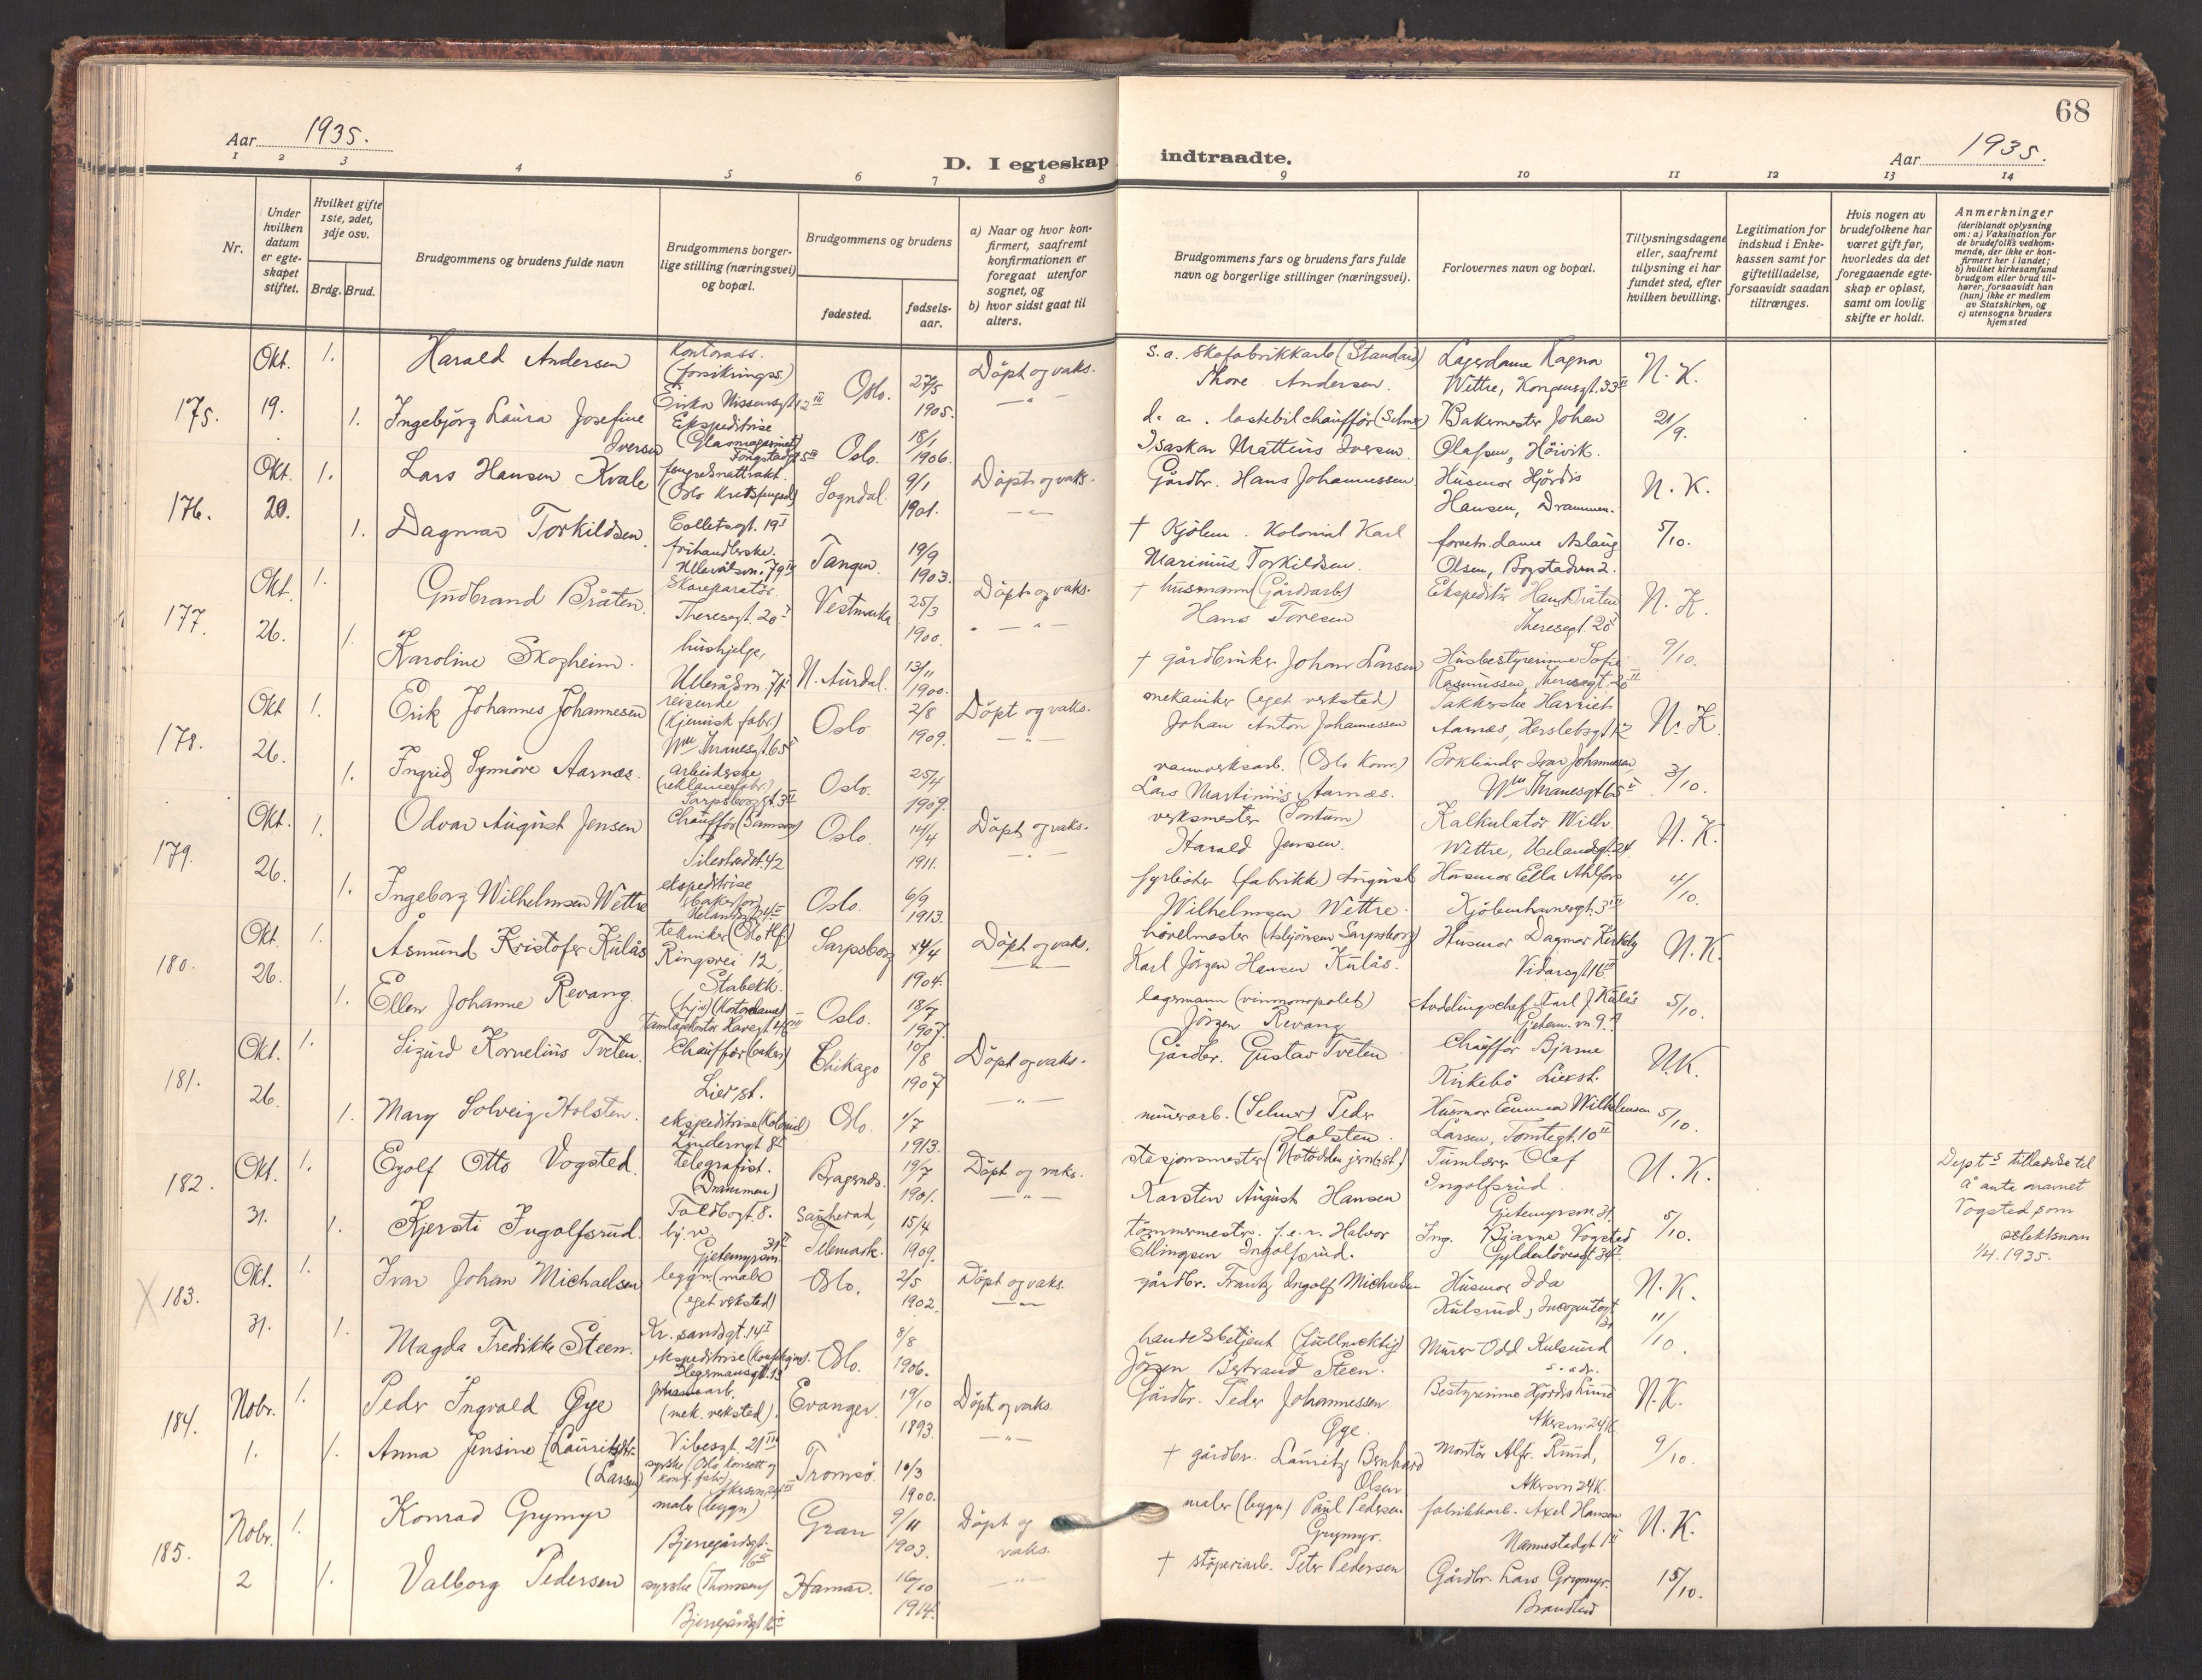 68
Aar 1935.
D. I egteskap indtraadte.
Aar 1935.
1 2 3 4 5 6 7 8 9 10 11 12 13 14
Nr.
Under hvilken datum er egteskapet stiftet.
Hvilket gifte 1ste, 2det, 3dje osv.
Brdg. Brud.
Brudgommens og brudens fulde navn
Brudgommens borgerlige stilling (næringsvei) og bopæl.
Brudgommens og brudens
fødested.
fødselsaar.
a) Naar og hvor konfirmert, saafremt konfirmationen er foregaat utenfor sognet, og
b) hvor sidst gaat til alters.
Brudgommens fars og brudens fars fulde navn og borgerlige stillinger (næringsvei).
Forlovernes navn og bopæl.
Tillysningsdagene eller, saafremt tillysning ei har fundet sted, efter hvilken bevilling.
Legitimation for indskud i Enkekassen samt for giftetilladelse, forsaavidt saadan tiltrænges.
Hvis nogen av brudefolkene har været gift før, hvorledes da det foregaaende egteskap er opløst, samt om lovlig skifte er holdt.
Anmerkninger
(deriblandt oplysning om: a) Vaksination for de brudefolks vedkommende, der ikke er konfirmert her i landet; b) hvilket kirkesamfund brudgom eller brud tilhører, forsaavidt han (hun) ikke er medlem av Statskirken, og c) utensogns bruders hjemsted
175. Okt. 19.
1. Harald Andersen
Kontorass. (forsikrings.)
Oslo. 27/5 1905.
Döpt og vaks.
s. a. skofabrikkarb (Standard) Thore Andersen.
Lagerdame Ragna Wettre, Kongensgt. 33 II
N. K.
1. Ingebjörg Laura Josefine Iversen
Ekspeditrise (Glasmagasinet)
Oslo. 18/1 1906.
d. a. lastebilchaufför (Selmer) Isaskar Mattius Iversen
Bakermester Johan Olafsen, Hövik.
21/9.
176. Okt. 20.
1. Lars Hansen Kvale
(Oslo Kretsfengsel) Colletsgt. 19 I
Sogndal. 9/1 1901.
Döpt og vaks.
Gårdbr. Hans Johannessen
Husmor Hjördis Hansen, Drammen.
N. K.
1. Dagmar Torkildsen.
Ullevålsv. 79 IV
Tangen. 19/9 1903.
† Kjölem. Kolonial Karl Marinius Torkildsen.
forretn.dame Aslaug Olsen, Bogstadvn 2.
5/10.
177. Okt. 26.
1. Gudbrand Bråten.
Skoreparatör. Theresegt. 20 I
Vestmarka 25/3 1900.
Döpt og vaks.
† husmann (Gårdsarb) Hans Toresen
Ekspeditör Hans Bråten Theresegt. 20 I
N. K.
1. Karoline Skogheim.
hushjelp, Ullevålsvn. 71 I
N. Aurdal. 13/11 1900.
† gårdbruker Johan Larsen
Husbestyrerinne Sofie Rasmussen, Theresegt. 20 II
9/10.
178. Okt 26.
1. Erik Johannes Johannesen
reisende (Kjemisk fabr.) Wm Thranesgt. 65 I
Oslo 2/8 1909.
Döpt og vaks.
mekaniker (eget verksted) Johan Anton Johannessen
Pakkerske Harriet Aarnæs, Herslebsgt 12
N. K.
1. Ingrid Synnöve Aarnæs.
Arbeiderske (reklamefabr.) Sarpsborggt. 3 II
Oslo. 25/4 1909.
vannverksarb. (Oslo Kom.) Lars Martinius Aarnæs.
Bokbinder Ivar Johannesen, Wm Thranesgt 65 II
3/10.
179. Okt. 26.
1. Odvar August Jensen
Chaufför (Samson) Pilestredet 42
Oslo. 14/4 1911.
Döpt og vaks.
verksmester (Sontum) Harald Jensen.
Kalkulatör Wilh. Wettre, Uelandsgt. 24
N. K.
1. Ingeborg Wilhelmsen Wettre
ekspeditrise
Oslo. 6/9 1913.
fyrböter (fabrikk) August Wilhelmsen Wettre.
Husmor Ella Ahlfors Kjöbenhavnsgt. 3 III
4/10.
180. Okt. 26.
1. Åsmund Kristofer Kulås
tekniker (Oslo tlf) Ringsvei 12, Stabekk.
Sarpsborg 4/4 1904.
Döpt og vaks.
hövelmester (Asbjörnsen Sarpsborg) Karl Jörgen Hansen Kulås.
Husmor Dagmar Kirkeby Vidarsgt 16 III
N. K.
1. Ellen Johanne Revang.
Oslo. 18/7 1907.
lagermann (vinmonopolet) Jörgen Revang
Avdelingschef Karl J Kulås Gjetem. vn. 9 A
5/10.
181. Okt. 26.
1. Sigurd Kornelius Tveten.
Chauffør (baker) Lier st.
Chikago 10/8 1907
Döpt og vaks.
Gårdbr. Gustav Tveten
Chaufför Bjarne Kirkebö Lier st.
N. K.
1. Mary Solveig Holsten.
ekspeditrise (Kolonial) Linderngt 8
Oslo. 1/7 1913.
murerarb. (Selmer) Peder Holsten.
Husmor Emma Wilhelmsen Larsen, Tomtegt. 10 II
5/10.
182. Okt. 31.
1. Eyolf Otto Vogsted.
telegrafist. (Drammen) Toldbogt. 8.
Bragernes. 19/7 1901.
Döpt og vaks.
stasjonsmester (Notodden jernb.st.) Karsten August Hansen
Tömlærer Olaf Ingolfsrud. Gjetemyrsvn. 31.
N. K.
1. Kjersti Ingolfsrud.
hj. v. Gjetemyrsvn. 31 II
Sauherad, Telemark. 15/4 1909.
tömmermester. f. e. r. Halvor Ellingsen Ingolfsrud.
Ing. Bjarne Vogsted Gyldenlövesgt 34 I
5/10.
Dept s tilladelse til å anta navnet Vogsted som slektsnavn 1/4. 1935.
X 183. Okt. 31.
1. Ivar Johan Michaelsen
byggn (maler) (eget verksted) Kr. sandsgt. 14 I
Oslo. 2/5 1902.
Döpt og vaks.
gårdbr. Frantz Ingolf Michaelsen
Husmor Ida Kulsrud,
N. K.
1. Magda Fredrikke Steen.
Oslo. 8/8 1906.
handelsbetjent (fullmektig) Jörgen Bertrand Steen.
Murer Odd Kulsrud s. adr.
11/10.
184. Nobr. 1.
1. Peder Ingvald Gye
(mek. verksted). Vibesgt. 21 III
Evanger. 19/10 1893.
Döpt og vaks.
Gårdbr. Peder Johannessen Gye.
Bestyrerinne Hjördis Ruud Akersvn 24 K.
N. K.
1. Anna Jensine (Lauritzdtr. (Larsen)
Tromsö. 10/3 1900.
† gårdbr. Lauritz Bernhard Olsen
Montör Alfr. Ruud, Akersvn 24 K.
9/10.
185. Nobr. 2
1. Konrad Grymyr
maler (byggn) Bjerregårdsgt.
Gran 9/11 1903.
Döpt og vaks.
maler (byggn) Paul Pedersen Grymyr.
fabrikkarb. Axel Hansen Nannestadgt 1 II
N. K.
1. Valborg Pedersen
syerske (Thomsen) Bjerregårdsgt
Hamar. 16/10 1914.
† stöperiarb. Peter Pedersen
Gårdbr. Lars Grymyr. Brandbu
15/10.